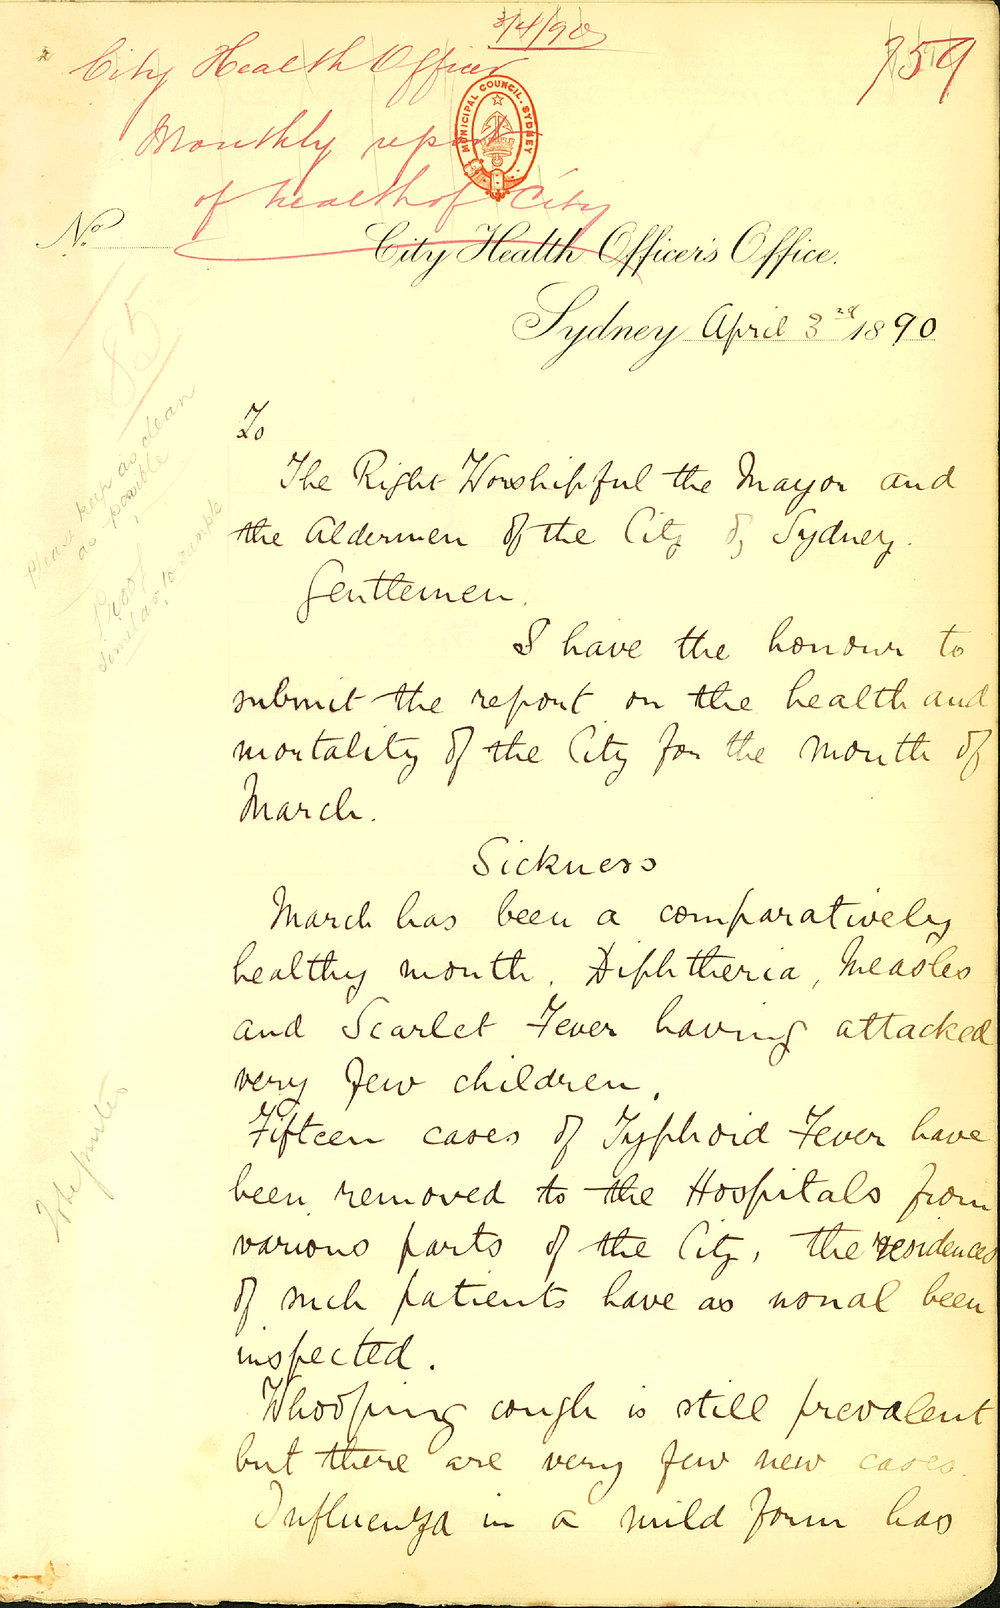 3/4/90
759
City Health Officer
Monthly report
of health of City
MUNICIPAL COUNCIL. SYDNEY
No.
City Health Officer's Office.
Sydney April 3rd 1890
85
Please keep as clean
as possible
Proof
similar to sample
To
The Right Worshipful the Mayor and
the Aldermen of the City of Sydney.
Gentlemen.
I have the honour to
submit the report on the health and
mortality of the City for the month of
March.
Sickness
March has been a comparatively
healthy month. Diphtheria, Measles
and Scarlet Fever having attacked
very few children.
Fifteen cases of Typhoid Fever have
been removed to the Hospitals from
various parts of the City, the residences
of such patients have as usual been
inspected.
Whooping cough is still prevalent
but there are very few new cases.
Influenza in a mild form has